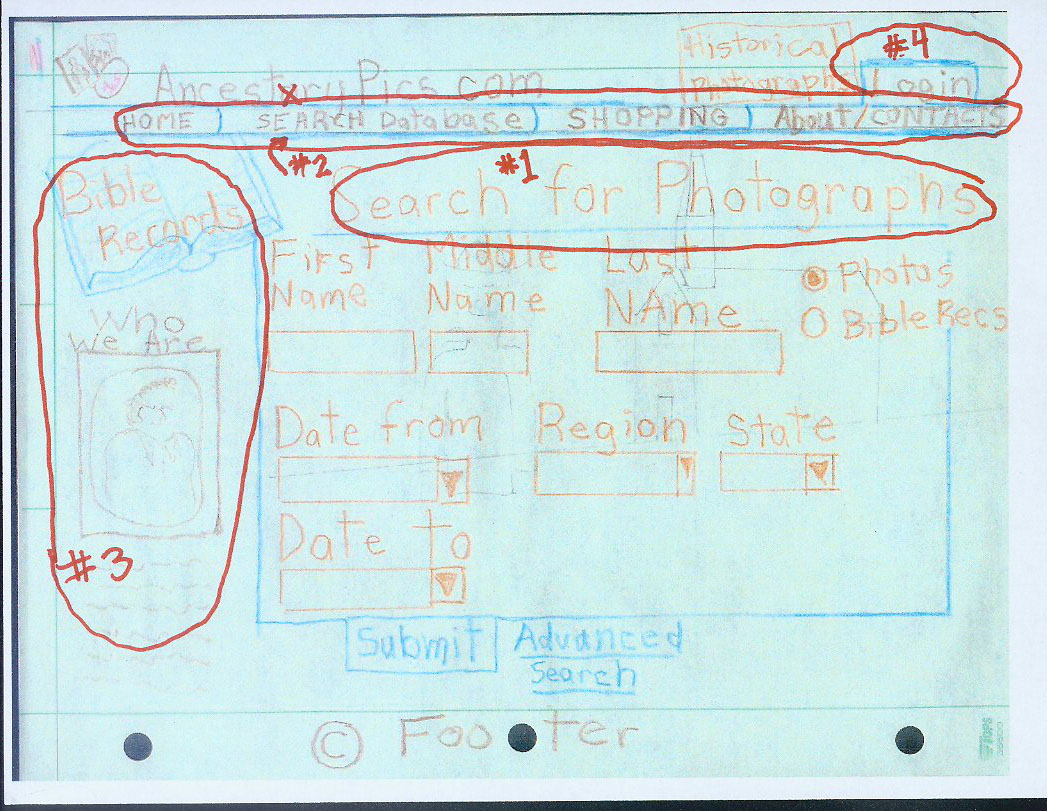 Historical
photographs
#4
Login
AncestxryPics.com
HOME SEARCH Database SHOPPING About/CONTACTS
#2
#1
Bible
Records
Search for Photographs
First
Name
Middle
Name
Last
NAme
Photos
Bible Recs
Who
We Are
Date from
Region
State
Date to
#3
Submit
Advanced
Search
© Footer
TOPS